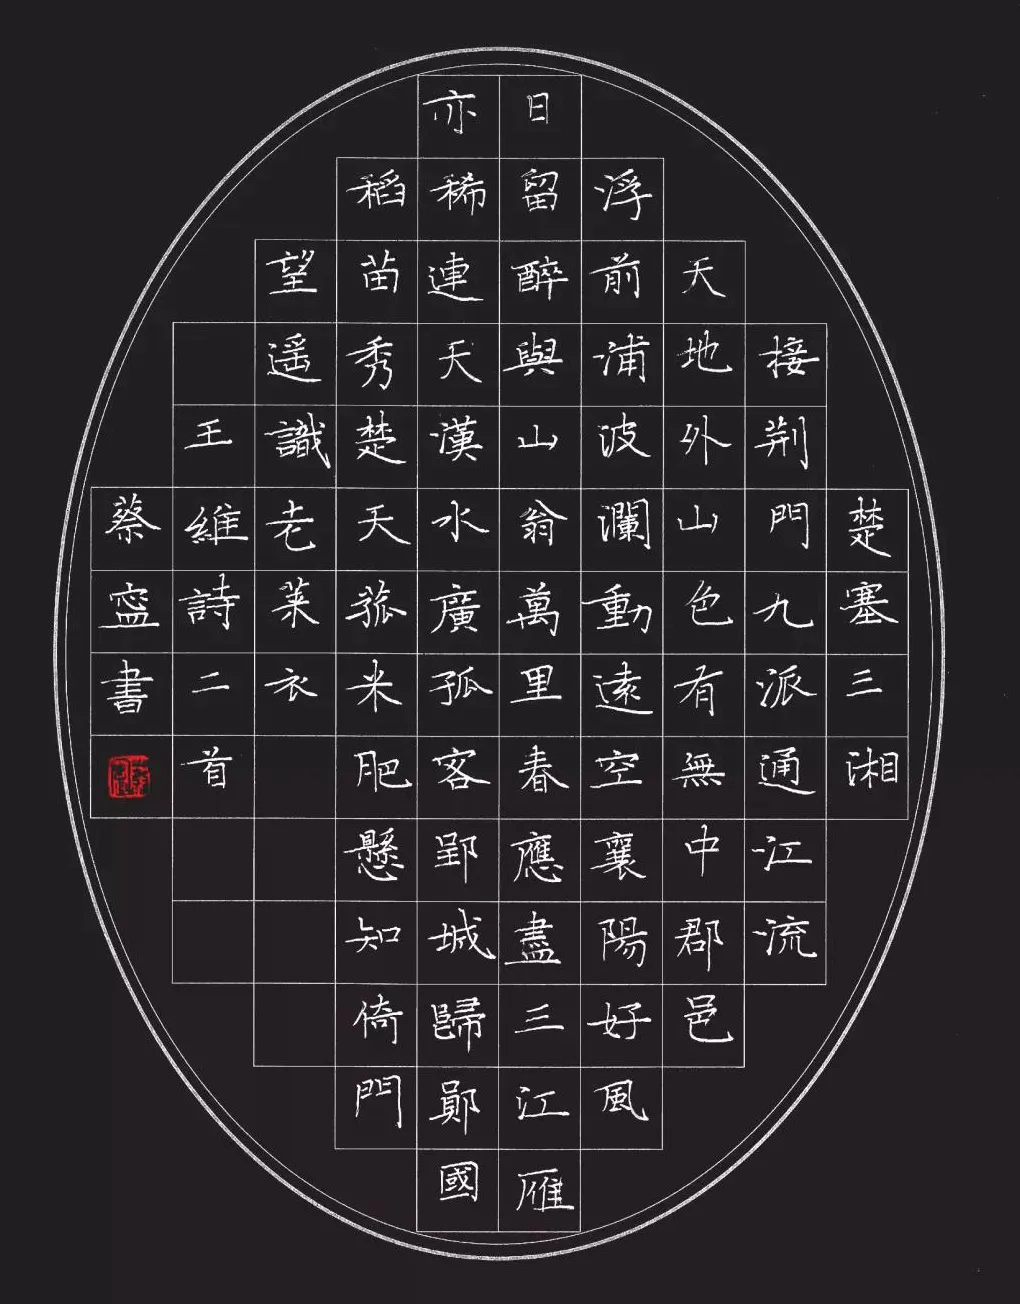 楚塞三湘
接荆門九派通江流
天地外山色有無中郡邑
浮前浦波瀾動遠空襄陽好風
日留醉與山翁萬里春應盡三江雁
亦稀連天漢水廣孤客郢城歸鄖國
稻苗秀楚天菰米肥懸知倚門
望遥識老莱衣
王維詩二首
蔡寍書